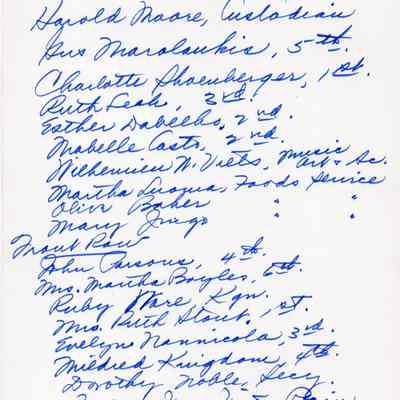 Harold Moore, Custodian
Gus Marolaukis, 5th.
Charlotte Shoenberger, 1st.
Ruth Leah, 3rd.
Esther Dabellbo, 2nd.
Mabelle Casto, 2nd.
Wilhemien W. Viets, Music Art & Sc.
Martha Luoma, Foods Service
Olive Baker " "
Mary Jingo " "
Front Row
John Parsons, 4th.
Mrs. Martha Boyles, 6th.
Ruby Ware, Kgn.
Mrs. Ruth Stout, 1st.
Evelyn Nannicola, 3rd.
Mildred Kningdom, 4th.
Dorothy Noble, Secy.